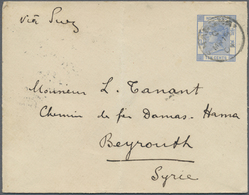 via Suez
Monsieur L. Tanant
Chemin de fer Damas. Hama
Beyrouth
Syrie